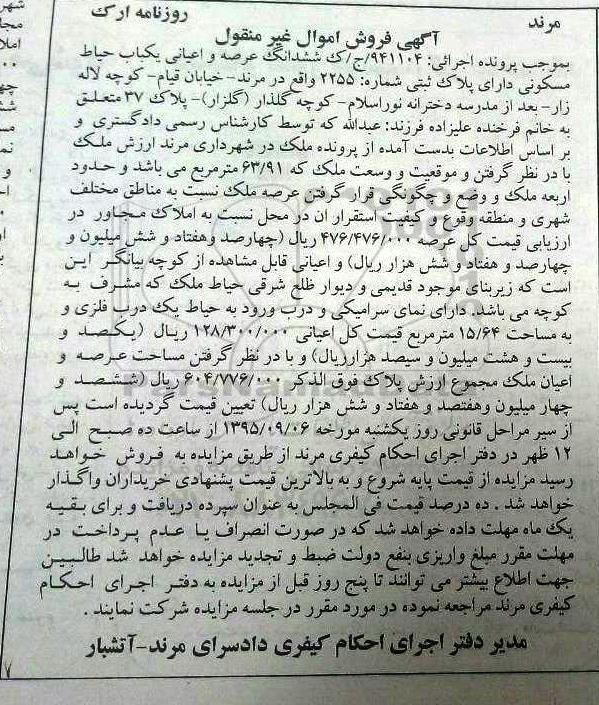 مرند
روزنامه ارک
آگهی فروش اموال غیر منقول
بموجب پرونده اجرائی: ۹۴۱۱۰۴/ج/ک ششدانگ عرصه و اعیانی یکباب حیاط
مسکونی دارای پلاک ثبتی شماره: ۲۲۵۵ واقع در مرند-خیابان قیام-کوچه لاله
زار-بعد از مدرسه دخترانه نوراسلام-کوچه گلذار (گلزار)-پلاک ۳۷ متعلق
به خانم فرخنده علیزاده فرزند: عبدالله که توسط کارشناس رسمی دادگستری و
بر اساس اطلاعات بدست آمده از پرونده ملک در شهرداری مرند ارزش ملک
با در نظر گرفتن و موقعیت و وسعت ملک که ۶۳/۹۱ مترمربع می باشد و حدود
اربعه ملک و وضع و چگونگی قرار گرفتن عرصه ملک نسبت به مناطق مختلف
شهری و منطقه وقوع و کیفیت استقرار ان در محل نسبت به املاک مجاور در
ارزیابی قیمت کل عرصه ۴۷۶/۴۷۶/۰۰۰ ریال (چهارصد وهفتاد و شش میلیون و
چهارصد و هفتاد و شش هزار ریال) و اعیانی قابل مشاهده از کوچه بیانگر این
است که زیربنای موجود قدیمی و دیوار ظلع شرقی حیاط ملک که مشرف به
کوچه می باشد. دارای نمای سرامیکی و درب ورود به حیاط یک درب فلزی و
به مساحت ۱۵/۶۴ مترمربع قیمت کل اعیانی ۱۲۸/۳۰۰/۰۰۰ ریال (یکصد و
بیست و هشت میلیون و سیصد هزارریال) و با در نظر گرفتن مساحت عرصه و
اعیان ملک مجموع ارزش پلاک فوق الذکر ۶۰۴/۷۷۶/۰۰۰ ریال (ششصد و
چهار میلیون وهفتصد و هفتاد و شش هزار ریال) تعیین قیمت گردیده است پس
از سیر مراحل قانونی روز یکشنبه مورخه ۱۳۹۵/۰۹/۰۶ از ساعت ده صبح الی
۱۲ ظهر در دفتر اجرای احکام کیفری مرند از طریق مزایده به فروش خواهد
رسید مزایده از قیمت پایه شروع و به بالاترین قیمت پشنهادی خریداران واگذار
خواهد شد . ده درصد قیمت فی المجلس به عنوان سپرده دریافت و برای بقیه
یک ماه مهلت داده خواهد شد که در صورت انصراف یا عدم پرداخت در
مهلت مقرر مبلغ واریزی بنفع دولت ضبط و تجدید مزایده خواهد شد طالبین
جهت اطلاع بیشتر می توانند تا پنج روز قبل از مزایده به دفتر اجرای احکام
کیفری مرند مراجعه نموده در مورد مقرر در جلسه مزایده شرکت نمایند .
مدیر دفتر اجرای احکام کیفری دادسرای مرند-آتشبار